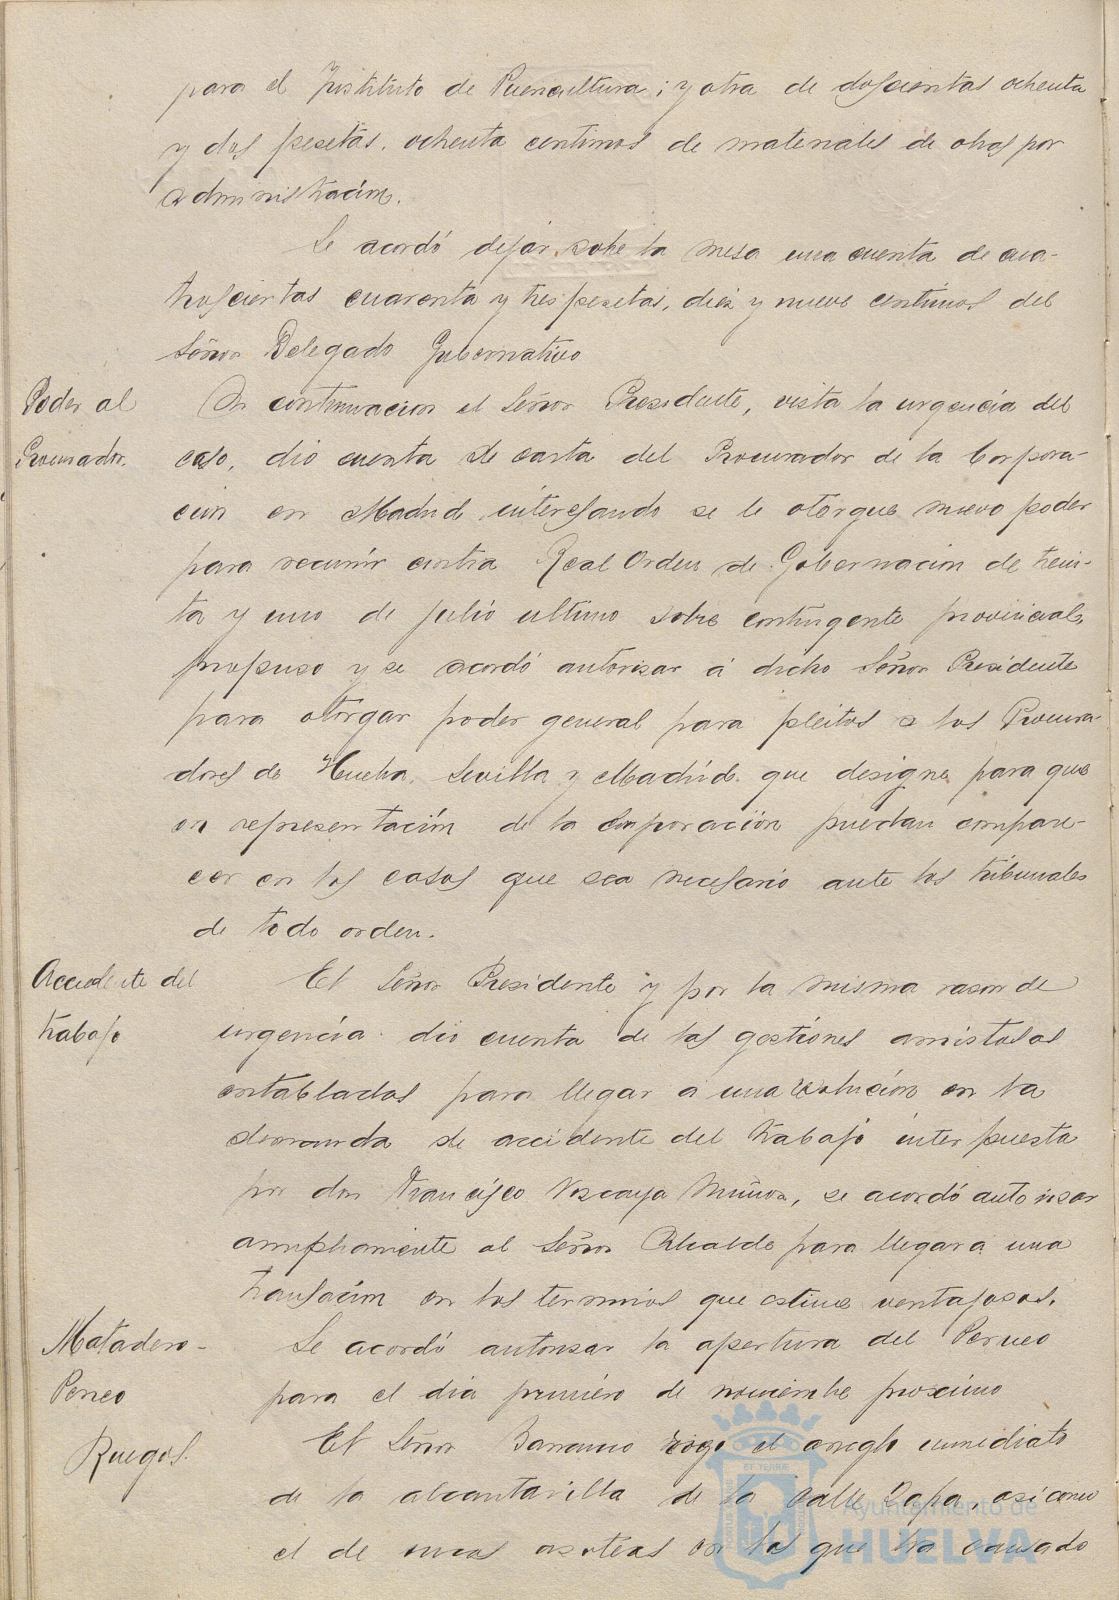 para el Instituto de Puericultura; y otra de doscientas ochenta
y dos pesetas, ochenta centimos de materiales de obras por
administración.
Se acordó dejar sobre la mesa una cuenta de cua-
troscientas cuarenta y tres pesetas, diez y nueve centimos del
Señor Delegado Gubernativo
Poder al
Procurador.
A continuacion el Señor Presidente, vista la urgencia del
caso, dio cuenta de carta del Procurador de la Corpora-
ción en Madrid interesando se le otorgue nuevo poder
para recurrir contra Real Orden de Gobernación de trein-
ta y uno de julio ultimo sobre contingente provincial,
propuso y se acordó autorisar á dicho Señor Presidente
para otorgar poder general para pleitos a los Procura-
dores de Huelva, Sevilla y Madrid que designe para que
en representación de la Corporación puedan compare-
cer en los casos que sea necesario ante los tribunales
de todo orden.
Accidente del
trabajo
El Señor Presidente y por la misma rason de
urgencia dio cuenta de las gestiones amistosas
entabladas para llegar a una solución en la
demanda de accidente del trabajo interpuesta
por don Francisco Viscaya Muñoz, se acordó autorisar
ampliamente al Señor Alcalde para llegar a una
transación en los terminos que estime ventajosos.
Matadero-
Perneo
Se acordó autorisar la apertura del Perneo
para el dia primero de noviembre proximo
Ruegos.
El Señor Barranco rogo el arreglo inmediato
de la alcantarilla de la calle Rapa, asi como
el de unas azoteas en las que ha causado
Ayuntamiento de
HUELVA